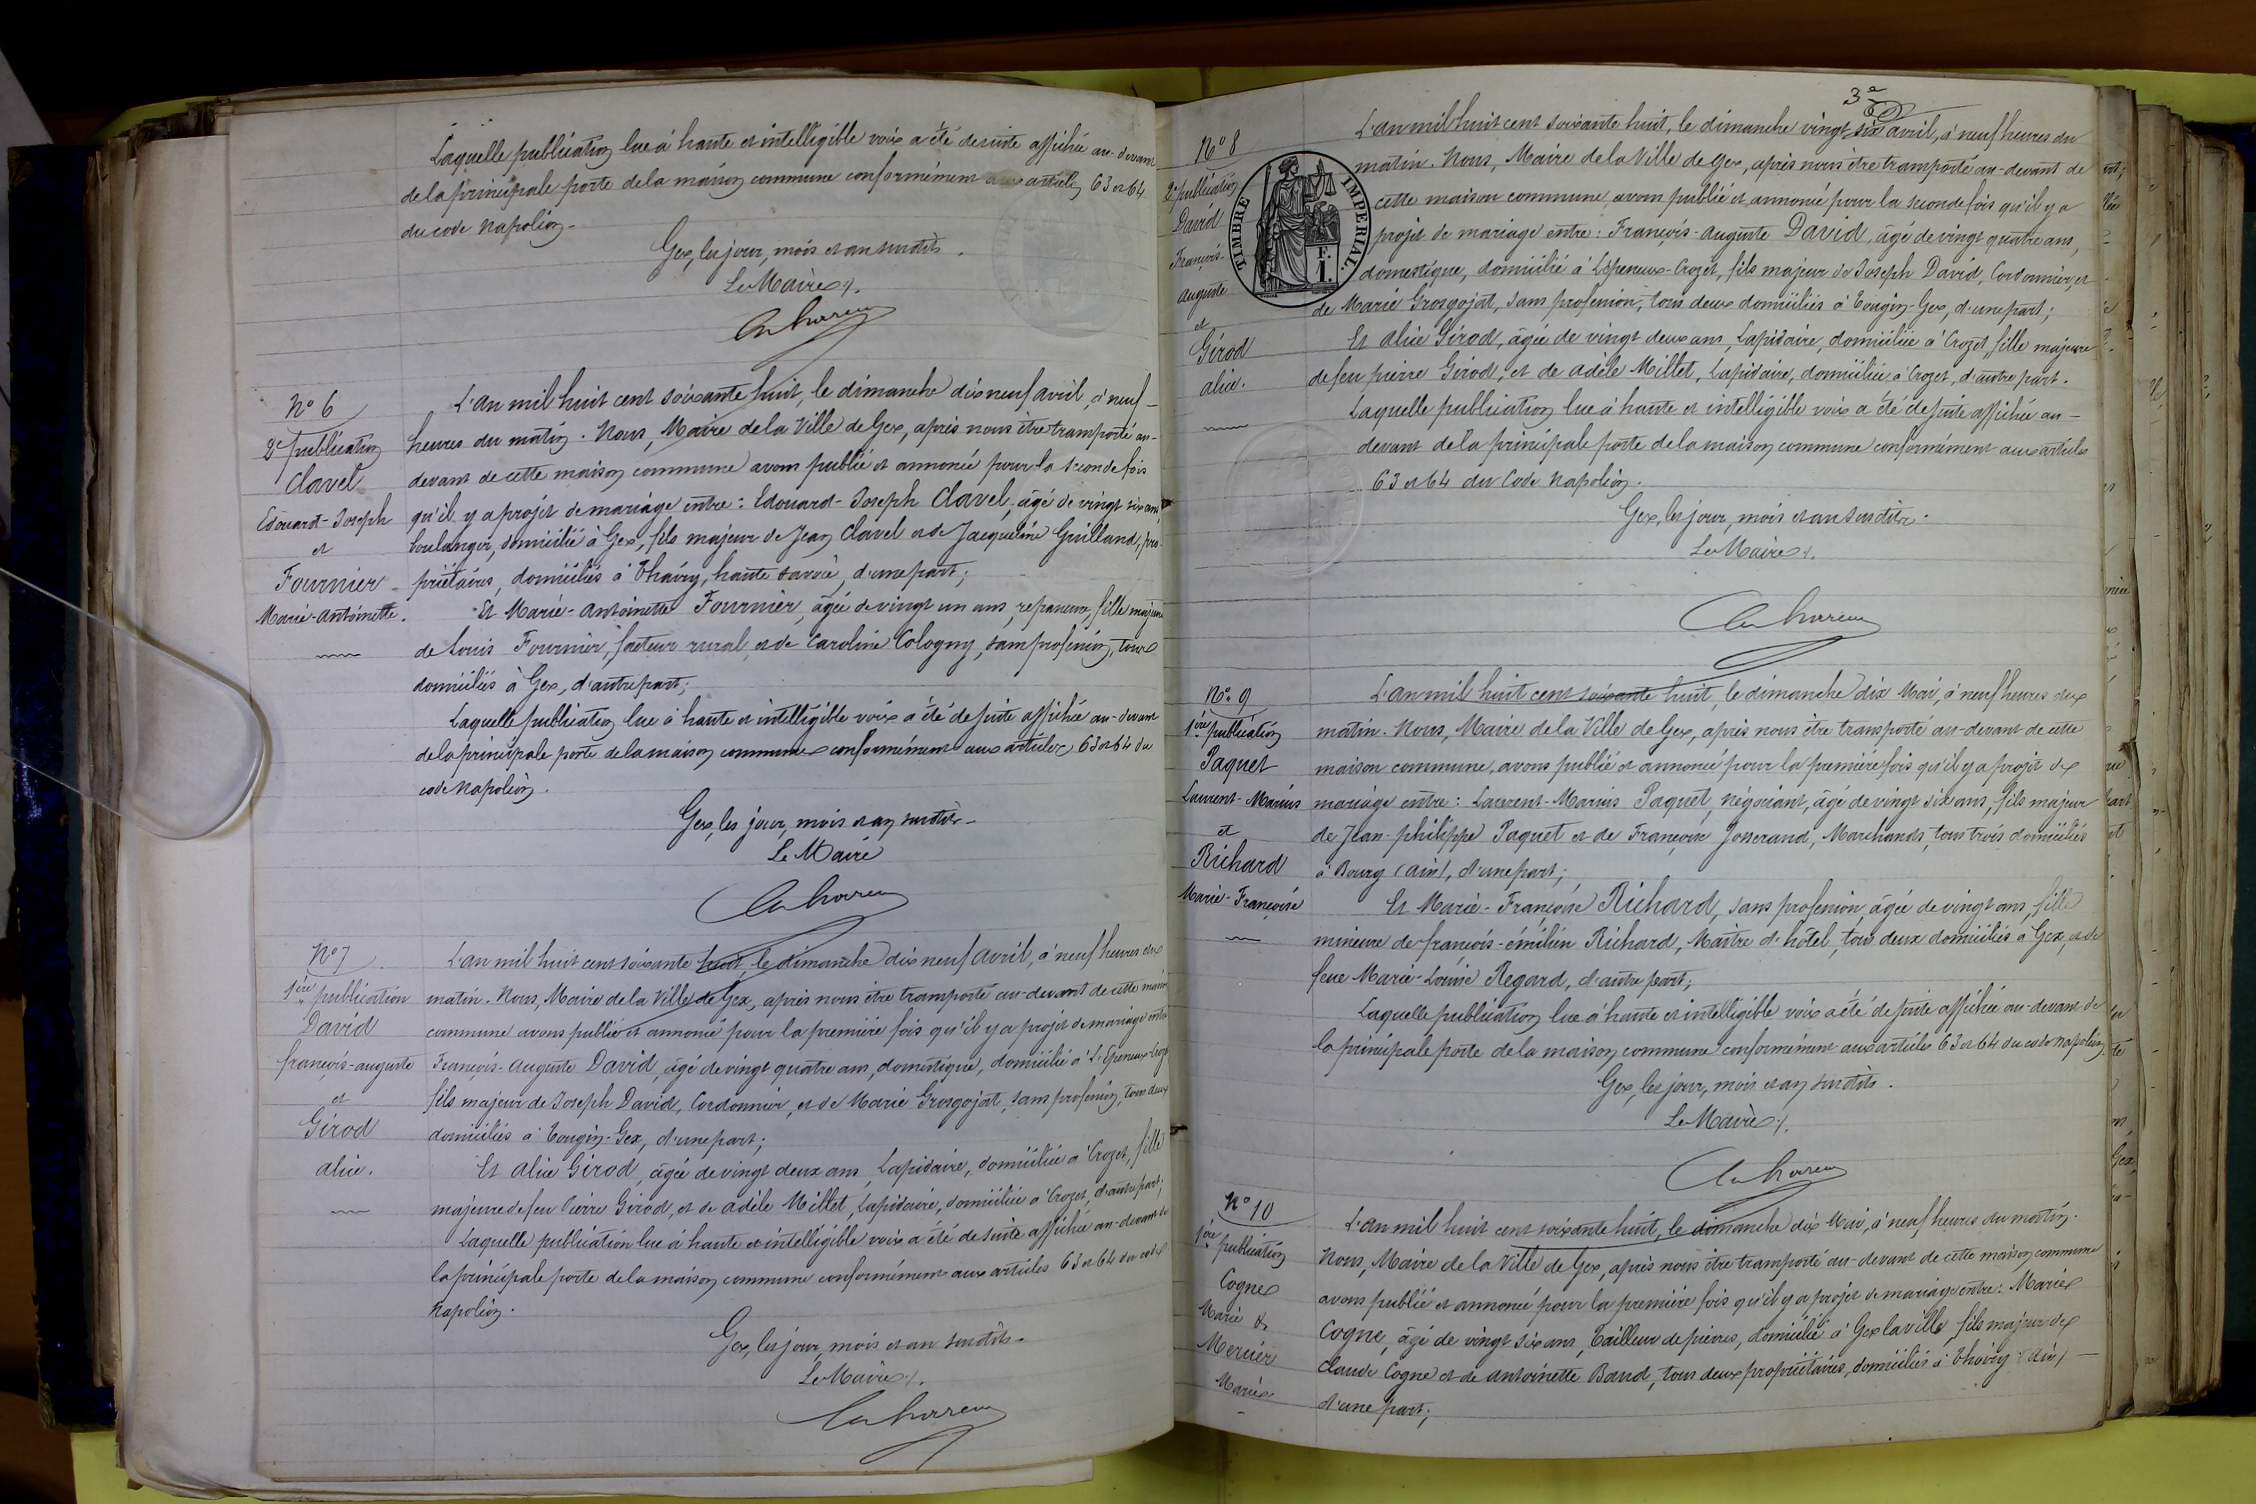 Laquelle publication lue à haute et intelligible voix a été de suite affichée au-devant
de la principale porte de la maison commune conformément aux articles 63 et 64
du code Napoléon.
Gex, les jour, mois et an susdits.
Le Maire
N° 6
2e publication
Clavel
Edouard-Joseph
et
Fournier
Marie-Antoinette.
L'an mil huit cent soixante huit, le dimanche dix neuf avril, à neuf
heures du matin. Nous, Maire de la Ville de Gex, après nous être transporté au-
devant de cette maison commune avons publié et annoncé pour la seconde fois
qu'il y a projet de mariage entre: Edouard-Joseph Clavel, âgé de vingt six ans
boulanger, domicilié à Gex, fils majeur de Jean Clavel et de Jacqueline Guilland, pro-
priétaires, domiciliés à Thoiry, haute Savoie, d'une part;
Et Marie-Antoinette Fournier, âgée de vingt un ans, repasseuse, fille majeure
de Louis Fournier, facteur rural et de Caroline Cologny, sans profession, tous
domiciliés à Gex, d'autre part;
Laquelle publication lue à haute et intelligible voix a été de suite affichée au-devant
de la principale porte de la maison commune conformément aux articles 63 et 64 du
code Napoléon.
Gex, les jour, mois et an susdits.
Le Maire
N° 7
1ère publication
David
françois-auguste
et
Girod
alice.
L'an mil huit cent soixante huit, le dimanche dix neuf avril, à neuf heures du
matin. Nous, Maire de la Ville de Gex, après nous être transporté au-devant de cette maison
commune avons publié et annoncé pour la première fois qu'il y a projet de mariage entre
François-Auguste David, âgé de vingt quatre ans, domestique, domicilié à L'Epeneux-Crozet
fils majeur de Joseph David, Cordonnier, et de Marie Grosgojat, sans profession, tous deux
domiciliés à Tougin-Gex, d'une part;
Et alice Girod, âgée de vingt deux ans, Lapidaire, domiciliée à Crozet, fille
majeure de feu Pierre Girod, et de adèle Millet, Lapidaire, domiciliée à Crozet, d'autre part;
Laquelle publication lue à haute et intelligible voix a été de suite affichée au-devant de
la principale porte de la maison commune conformément aux articles 63 et 64 du code
Napoléon.
Gex, les jour, mois et an susdits.
Le Maire
3e
N° 8
2e publication
David
François-
Auguste
et
Girod
alice.
TIMBRE IMPERIAL.
L'an mil huit cent soixante huit, le dimanche vingt-six avril, à neuf heures du
matin. Nous, Maire de la Ville de Gex, après nous être transporté au-devant de
cette maison commune avons publié et annoncé pour la seconde fois qu'il y a
projet de mariage entre: François-Auguste David, âgé de vingt quatre ans,
domestique, domicilié à L'Epeneux-Crozet, fils majeur de Joseph David, Cordonnier, et
de Marie Grosgojat, sans profession, tous deux domiciliés à Tougin-Gex, d'une part;
Et alice Girod, âgée de vingt deux ans, Lapidaire, domiciliée à Crozet, fille majeure
de feu pierre Girod, et de adèle Millet, Lapidaire, domiciliée à Crozet, d'autre part.
Laquelle publication lue à haute et intelligible voix a été de suite affichée au-
devant de la principale porte de la maison commune conformément aux articles
63 et 64 du Code Napoléon.
Gex, les jour, mois et an susdits.
Le Maire
N° 9
1ère publication
Paquet
Laurent-Marius
et
Richard
Marie-Françoise
L'an mil huit cent soixante huit, le dimanche dix Mai, à neuf heures du
matin. Nous, Maire de la Ville de Gex, après nous être transporté au-devant de cette
maison commune, avons publié et annoncé pour la première fois qu'il y a projet de
mariage entre: Laurent-Marius Paquet, négociant, âgé de vingt six ans, fils majeur
de Jean-philippe Paquet et de Françoise Josserand, Marchands, tous trois domiciliés
à Bourg (ain), d'une part;
Et Marie-Françoise Richard, sans profession, âgée de vingt ans, fille
mineure de françois-émilien Richard, Maître d'hôtel, tous deux domiciliés à Gex, et de
feue Marie-Louise Regard, d'autre part;
Laquelle publication lue à haute et intelligible voix a été de suite affichée au-devant de
la principale porte de la maison commune conformément aux articles 63 et 64 du code Napoléon.
Gex, les jour, mois et an susdits.
Le Maire
N° 10
1ère publication
Cogne
Marie &
Mercier
Marie
L'an mil huit cent soixante huit, le dimanche dix Mai, à neuf heures du matin.
Nous, Maire de la Ville de Gex, après nous être transporté au-devant de cette maison commune
avons publié et annoncé pour la première fois qu'il y a projet de mariage entre: Marie
Cogne, âgé de vingt six ans, Tailleur de pierres, domicilié à Gex la ville, fils majeur de
Claude Cogne et de Antoinette Baud, tous deux propriétaires, domiciliés à Thoiry (Ain)
d'une part;